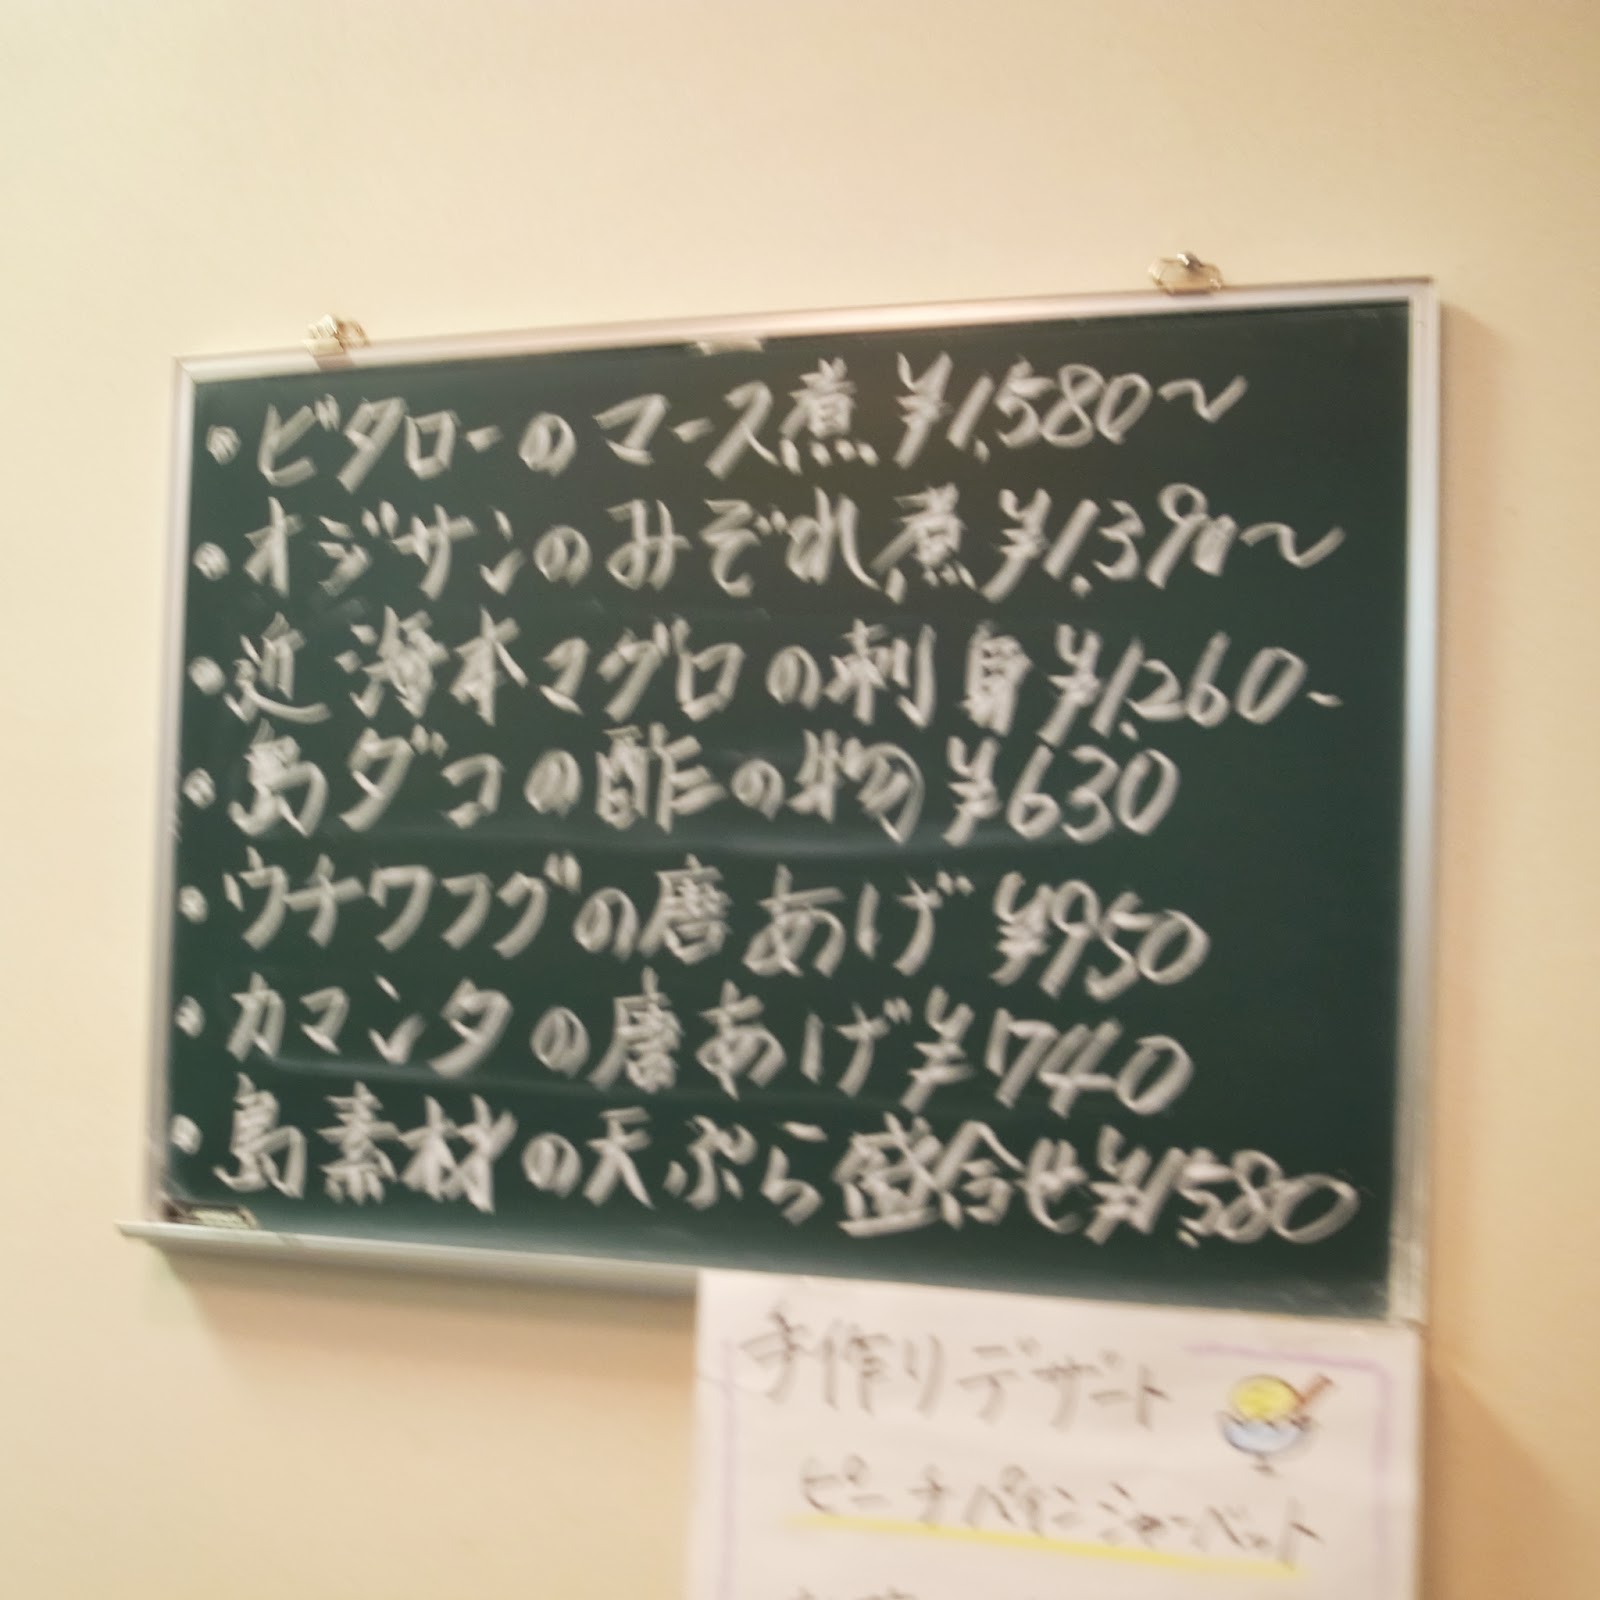 ・ビタローのマース煮 ¥1,580～
・オジサンのみぞれ煮 ¥1,390～
・近海本マグロの刺身 ¥1,260～
・島ダコの酢の物 ¥630
・ウチワフグの唐あげ ¥950
・カマンタの唐あげ ¥740
・島素材の天ぷら盛合せ ¥1,580
手作りデザート
ピーチパインシャーベット